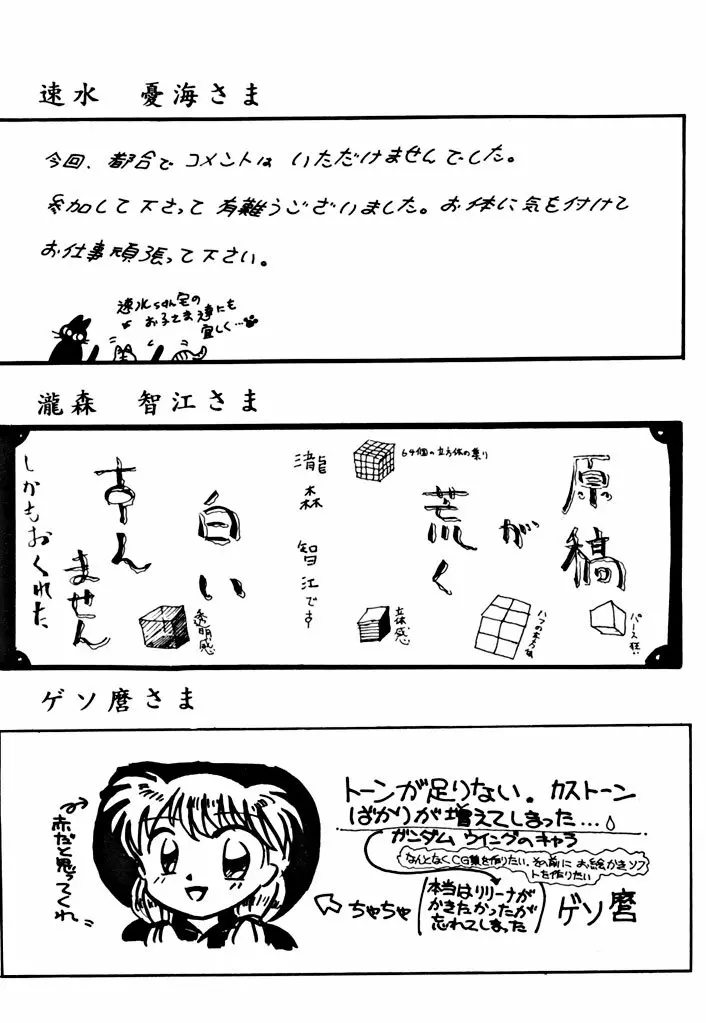 速水 憂海さま
今回、都合でコメントは いただけませんでした。
参加して下さって 有難うございました。お体に気を付けて
お仕事頑張って下さい。
速水さん宅の
お子さま達にも
宜しく…
瀧森 智江さま
原稿
が
荒く
64個の立方体の集り
瀧森 智江です
白い
すみ
ません
しかもおくれた
パース狂い
立体感
透明感
ゲソ麿さま
トーンが足りない。カストーン
ばかりが増えてしまった…。
ガンダム ウイングのキャラ
なんとなくCG集を作りたい。その前に お絵かきソフ
トを作りたい
本当はリリーナが
かきたかったが
忘れてしまった
ゲソ麿
ちゃちゃ
赤だと思ってくれ。